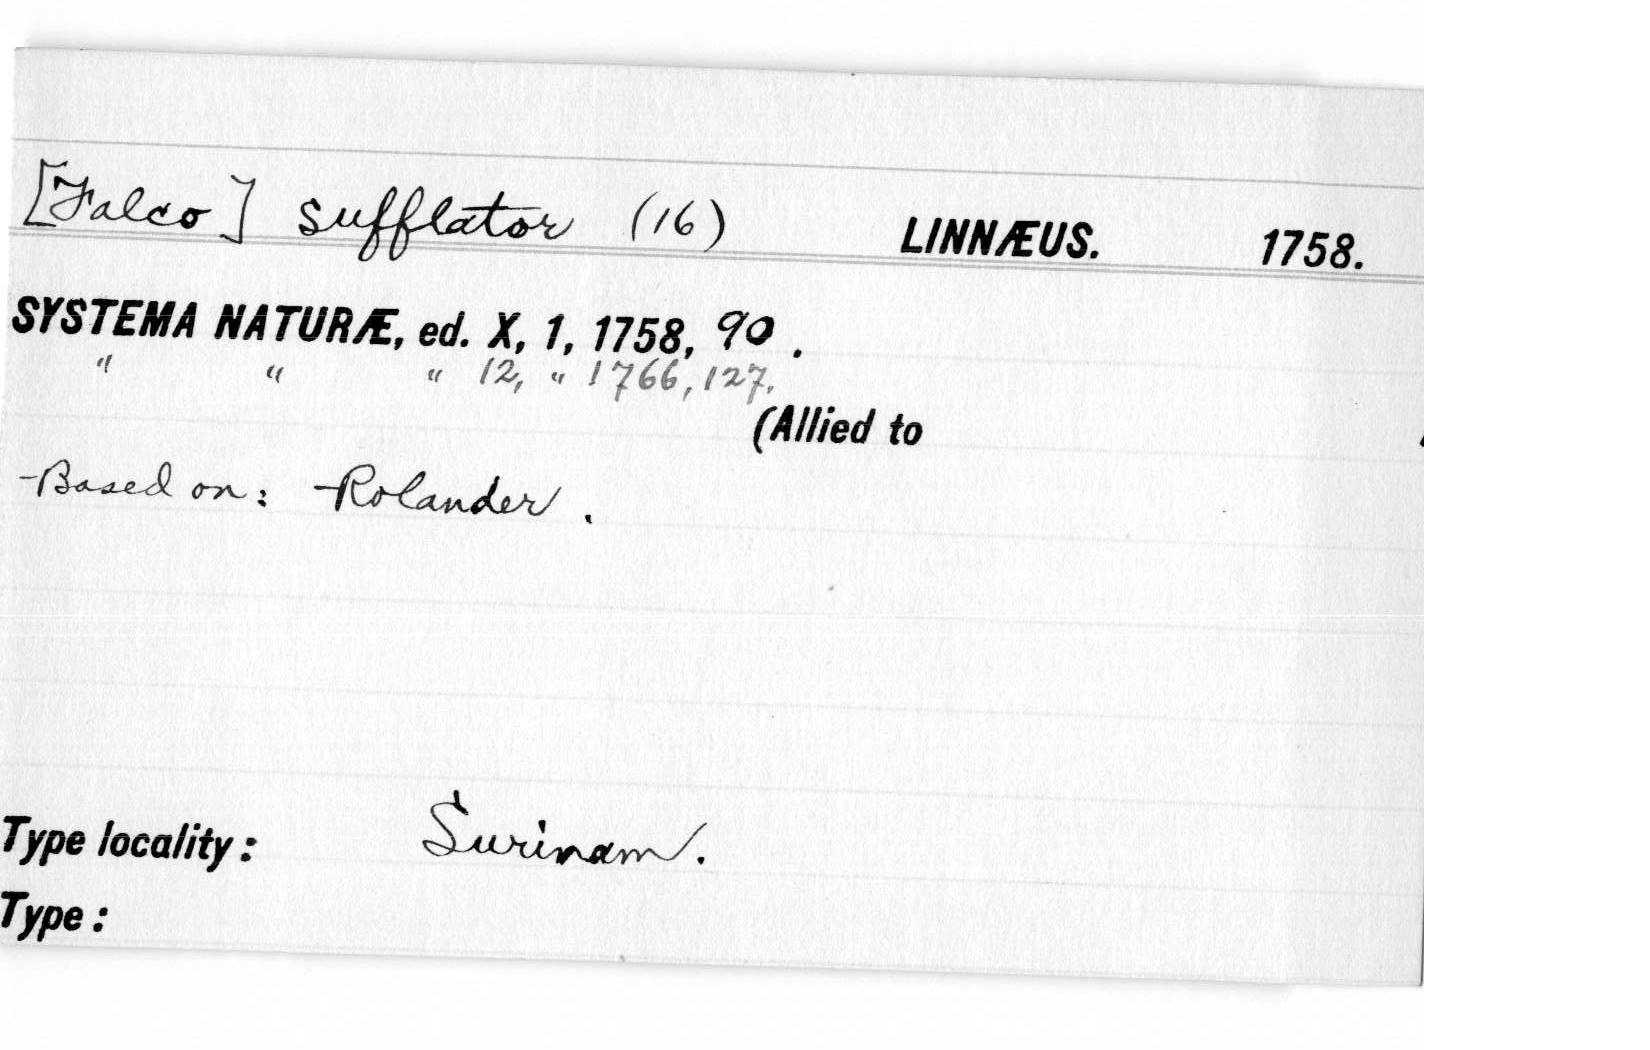 [Falco] sufflator (16) LINNÆUS. 1758.
SYSTEMA NATURÆ, ed. X, 1, 1758, 90.
" " " 12, " 1766, 127.
(Allied to
Based on: Rolander.
Type locality: Surinam.
Type: